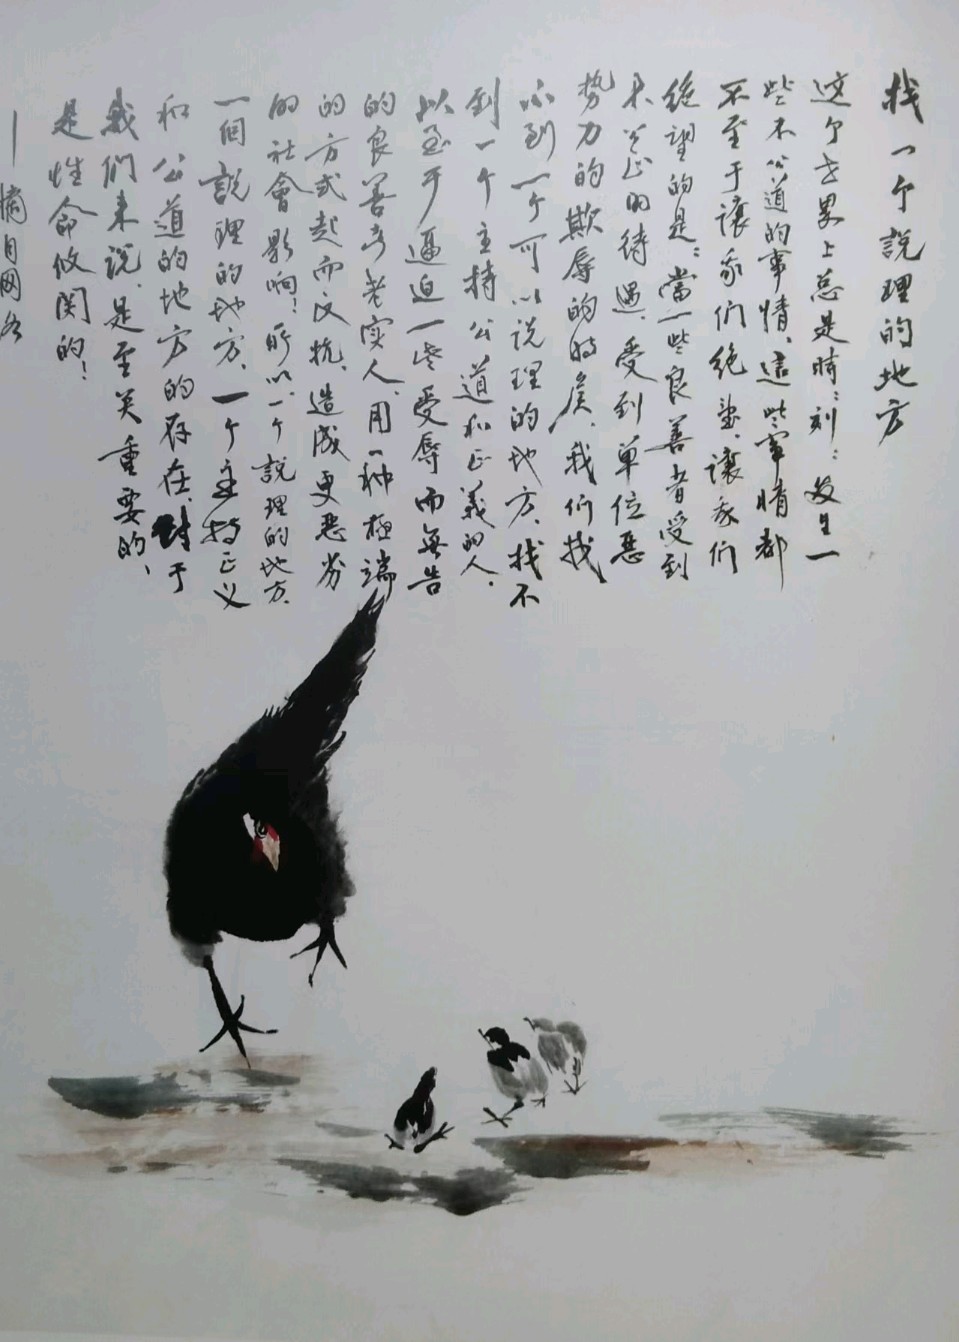 找一个說理的地方
这个世界上总是時:刻:发生一
些不公道的事情、這些事情都
不至于讓我们絶望、讓我们
絶望的是:當一些良善者受到
不公正的待遇、受到单位惡
势力的欺辱的時候、我们找
不到一个可以说理的地方、找不
到一个主持公道和正義的人、
以至于逼迫一些受辱而無告
的良善者老实人、用一种極端
的方式起而反抗、造成更惡劣
的社會影响!所以、一个說理的地方、
一個説理的地方、一个主持正义
和公道的地方的存在、對于
我们来说、是至关重要的、
是性命攸関的!
—摘自网名